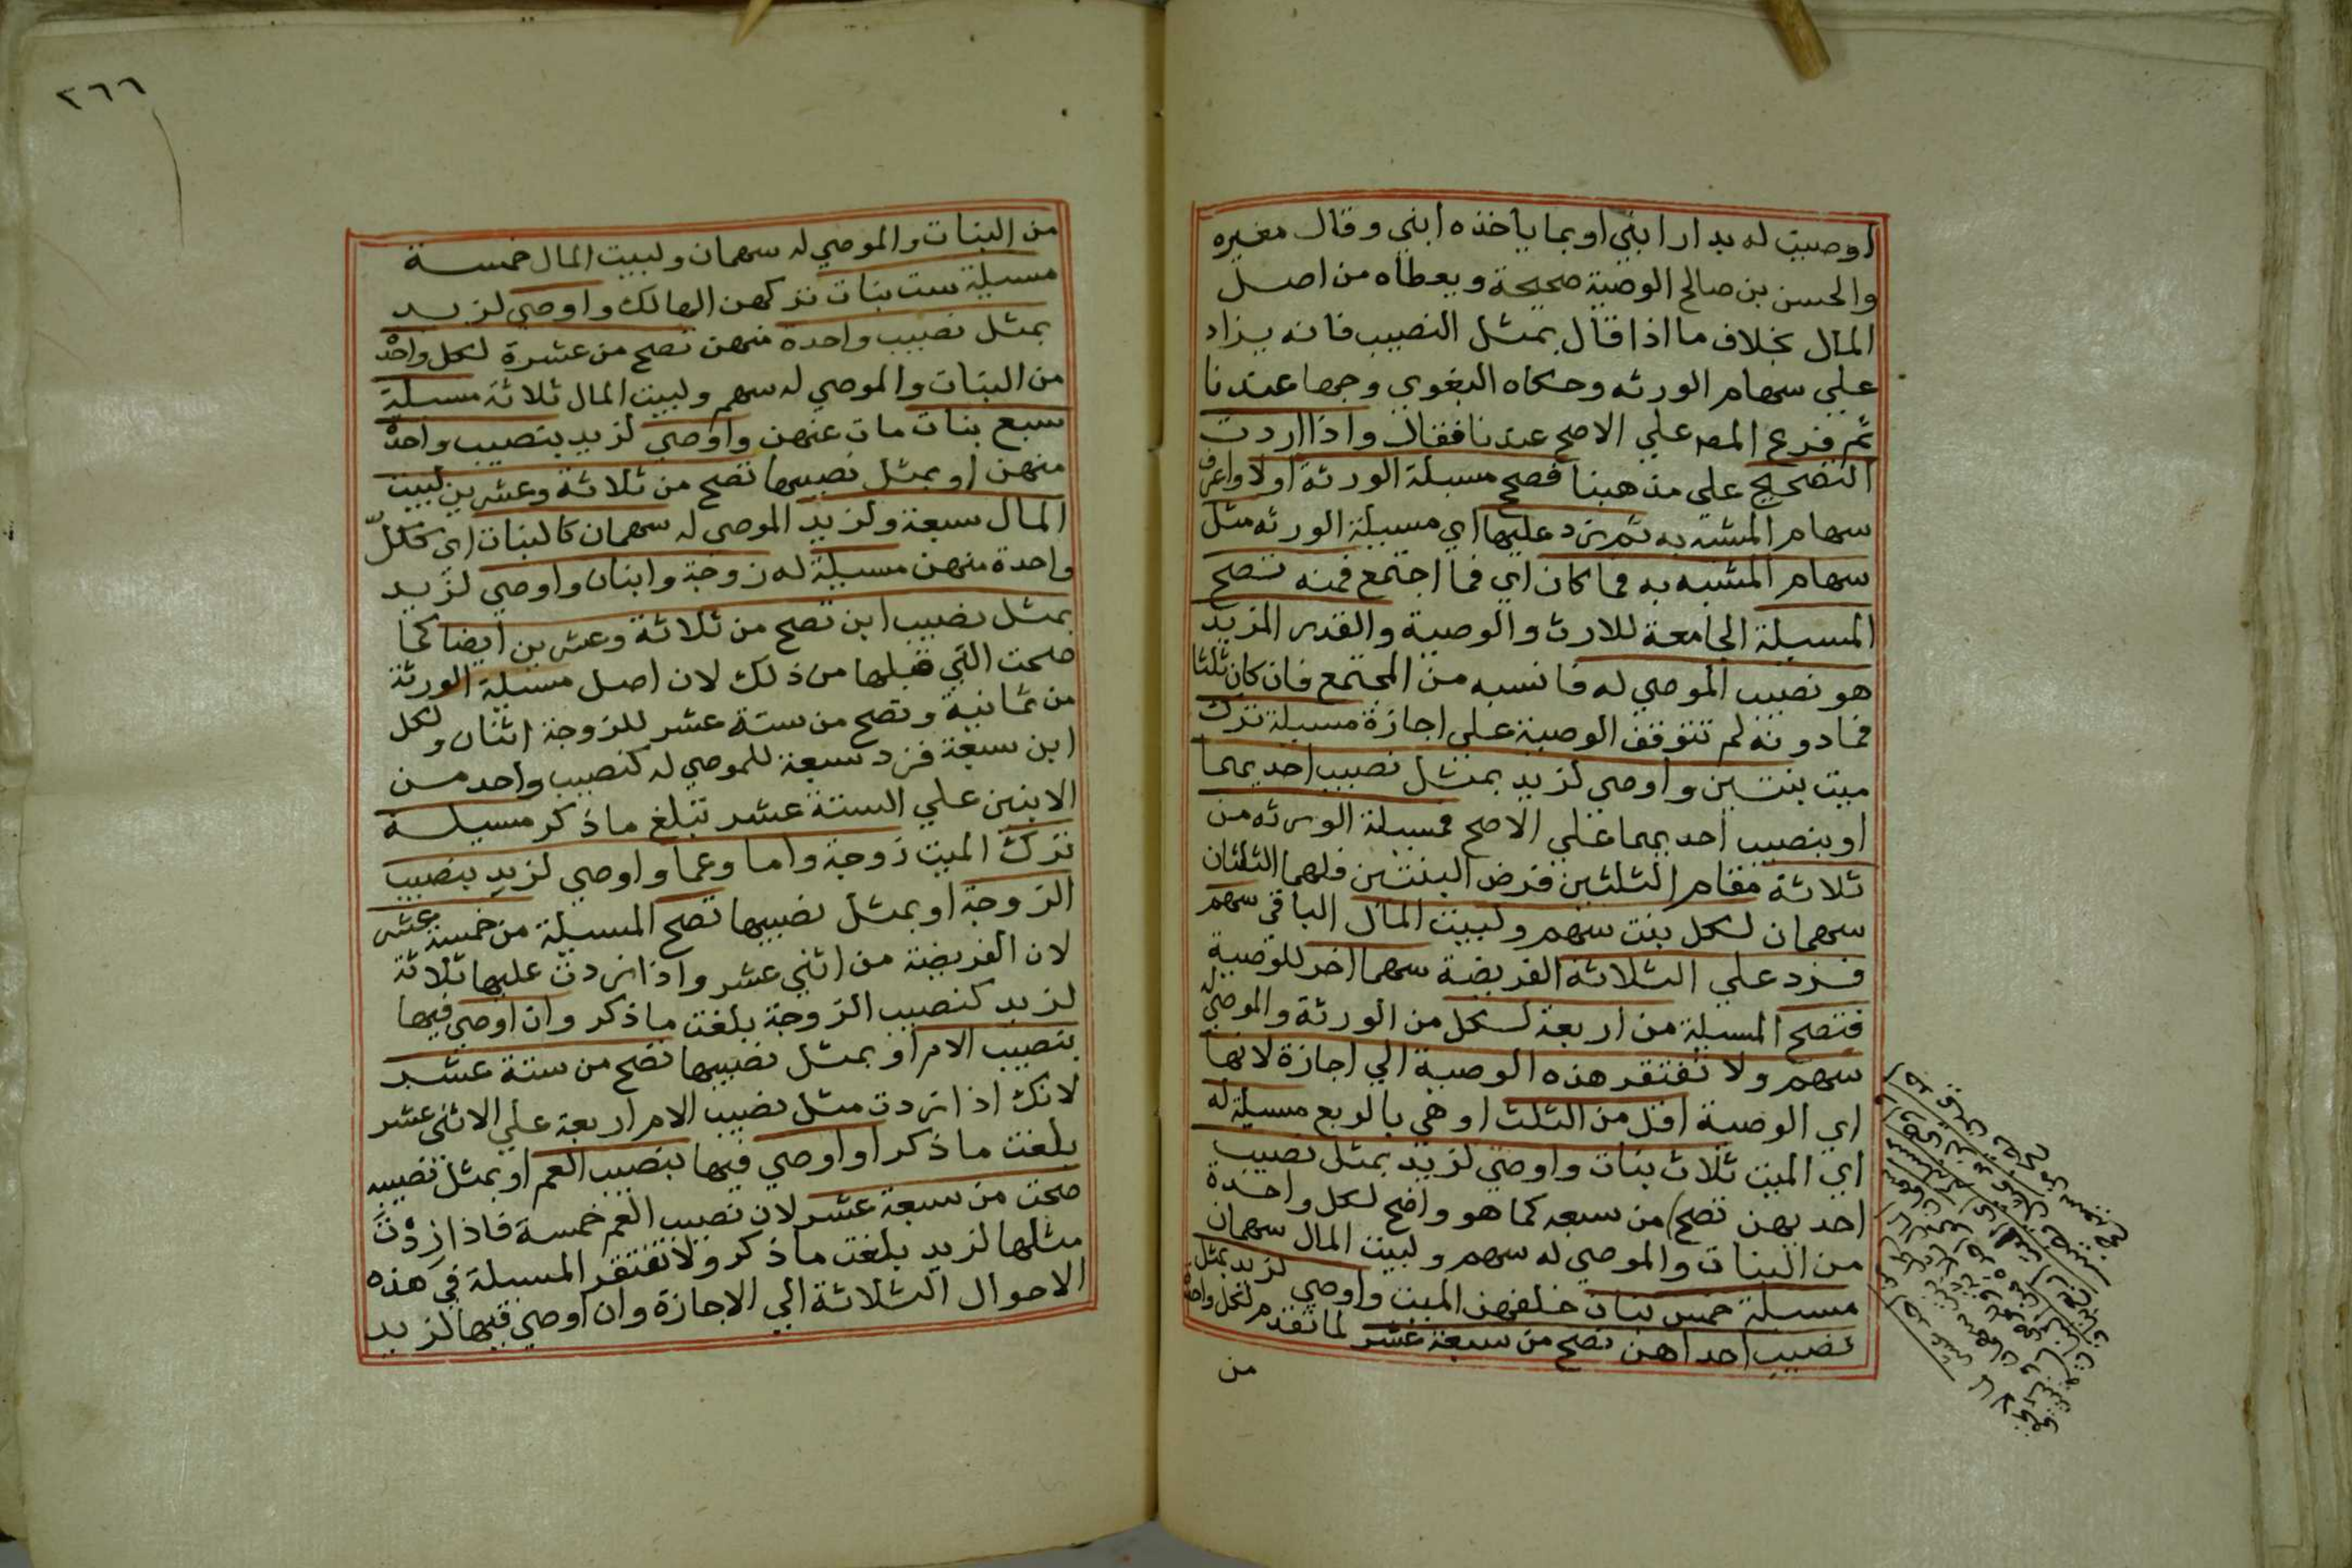 اوصيت له بدار ابني او بما ياخذه ابني وقال مغيره
والحسن بن صالح الوصية صحيحة ويعطاه من اصل
المال بخلاف ما اذا قال بمثل النصيب فانه يزاد
علي سهام الورثه وحكاه البغوي وجها عندنا
ثم فرع المصـ علي الاصح عندنا فقال واذا اردت
التصحيح علي مذهبنا فصحح مسيلة الورثة اولا واعرف
سهام المشبه به ثم زد عليها اي مسيلة الورثه مثل
سهام المشبه به فما كان اي فما اجتمع فمنه تصح
المسيلة الجامعة للارث والوصية والقدر المزيد
هو نصيب الموصي له فانسبه من المجتمع فان كان ثلثا
فما دونه لم تتوقف الوصية علي اجازة مسيلة ترك
ميت بنتين واوصي لزيد بمثل نصيب احديهما
او بنصيب احديهما علي الاصح فمسيلة الورثه من
ثلاثة مقام الثلثين فرض البنتين فلهما الثلثان
سهمان لكل بنت سهم ولبيت المال الباقي سهم
فزد علي الثلاثة الفريضة سهما اخر للوصية
فتصح المسيلة من اربعة لكل من الورثة والموصي له
سهم ولا تفتقر هذه الوصية الي اجازة لانها
اي الوصية اقل من الثلث اوهي بالربع مسيلة له
اي الميت ثلاث بنات واوصي لزيد بمثل نصيب
احديهن تصح من سبعه كما هو واضح لكل واحدة
من البنات والموصي له سهم ولبيت المال سهمان
مسيلة خمس بنات خلفهن الميت واوصي لزيد بمثل
نصيب احداهن تصح من سبعة عشر لما تقدم لكل واحدة
من
٢٦٦
من البنات والموصي له سهمان ولبيت المال خمسة
مسيلة ست بنات تركهن الهالك واوصي لزيد
بمثل نصيب واحدة منهن تصح من عشرة لكل واحدة
من البنات والموصي له سهم ولبيت المال ثلاثة مسيلة
سبع بنات مات عنهن واوصي لزيد بنصيب واحدة
منهن او بمثل نصيبها تصح من ثلاثة وعشرين لبيت
المال سبعة ولزيد الموصي له سهمان كالبنات اي كلكل
واحدة منهن مسيلة له زوجة وابنان واوصي لزيد
بمثل نصيب ابن تصح من ثلاثة وعشرين ايضا كما
صحت التي قبلها من ذلك لان اصل مسيلة الورثة
من ثمانية وتصح من ستة عشر للزوجة اثنان ولكل
ابن سبعة فزد سبعة للموصي له كنصيب واحد من
الابنين علي الستة عشر تبلغ ما ذكر مسيلة
ترك الميت زوجة واما وعما واوصي لزيد بنصيب
الزوجة او بمثل نصيبها تصح المسيلة من خمسة عشر
لان الفريضة من اثني عشر واذا زدت عليها ثلاثة
لزيد كنصيب الزوجة بلغت ما ذكر وان اوصي فيها
بنصيب الام او بمثل نصيبها تصح من ستة عشر
لانك اذا زدت مثل نصيب الام اربعة علي الاثني عشر
بلغت ما ذكر او اوصي فيها بنصيب العم او بمثل نصيبه
صحت من سبعة عشر لان نصيب العم خمسة فاذا زدت
مثلها لزيد بلغت ما ذكر ولا تفتقر المسيلة في هذه
الاحوال الثلاثة الي الاجازة وان اوصي فيها لزيد